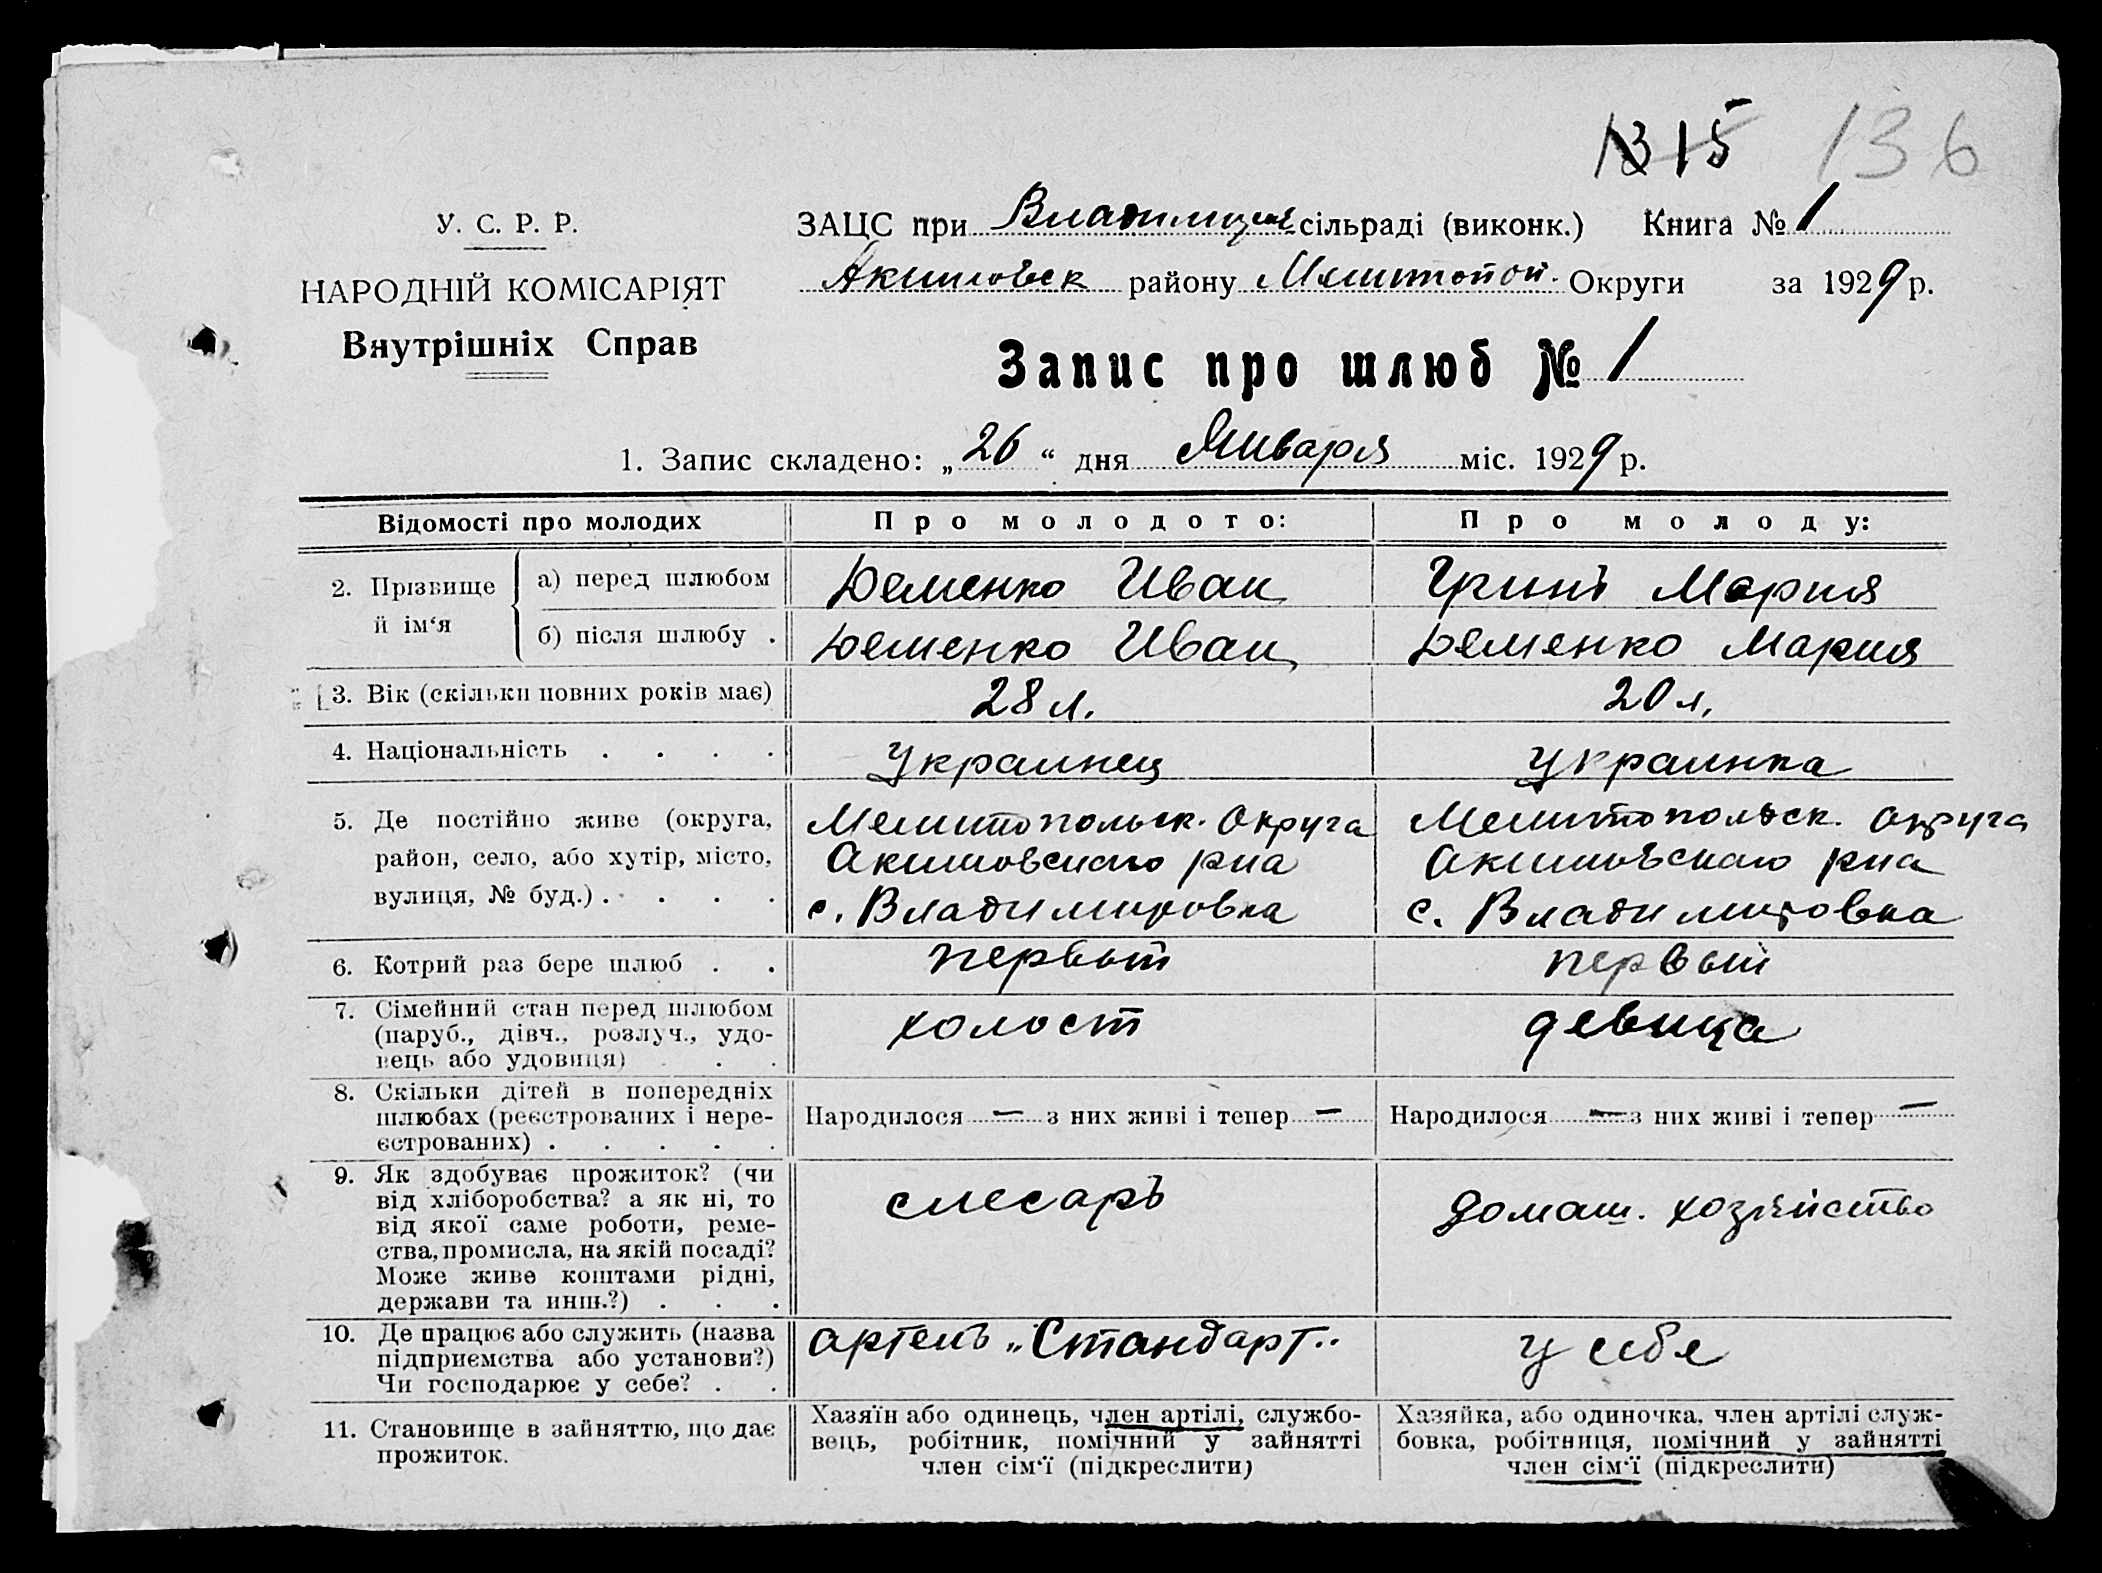 315 136
У. С. Р. Р.
НАРОДНІЙ КОМІСАРІЯТ
Внутрішніх Справ
ЗАЦС при сільраді (виконк.) Книга № 1
Акимовск району Округи за 1929 р.
Запис про шлюб № 1
1. Запис складено: „26“ дня Января міс. 1929 р.
Відомості про молодих
Про молодого:
Про молоду:
2. Прізвище й ім‘я
а) перед шлюбом
Иван
Мария
б) після шлюбу .
Иван
Мария
3. Вік (скільки повних років має)
28 л.
20 л.
4. Національність . . . .
Украинец
Украинка
5. Де постійно живе (округа,
район, село, або хутір, місто,
вулиця, № буд.) . . . .
Мелитопольск. округа
Акимовского рна
с. Владимировка
Мелитопольск. округа
Акимовского рна
с. Владимировка
6. Котрий раз бере шлюб . .
первый
первый
7. Сімейний стан перед шлюбом
(паруб., дівч., розлуч., удо-
вець або удовиця) . . .
холост
девица
8. Скільки дітей в попередніх
шлюбах (реєстрованих і нере-
єстрованих) . . . . .
Народилося — з них живі і тепер —
Народилося — з них живі і тепер —
9. Як здобуває прожиток? (чи
від хліборобства? а як ні, то
від якої саме роботи, реме-
ства, промисла, на якій посаді?
Може живе коштами рідні,
держави та инш.?) . . .
слесарь
домаш. хозяйство
10. Де працює або служить (назва
підприємства або установи?)
Чи господарює у себе? . .
артель „Стандарт“
у себя
11. Становище в зайняттю, що дає
прожиток.
Хазяїн або одинець, член артілі, службо-
вець, робітник, помічний у зайнятті
член сім‘ї (підкреслити)
Хазяйка, або одиночка, член артілі служ-
бовка, робітниця, помічний у зайнятті
член сім‘ї (підкреслити)